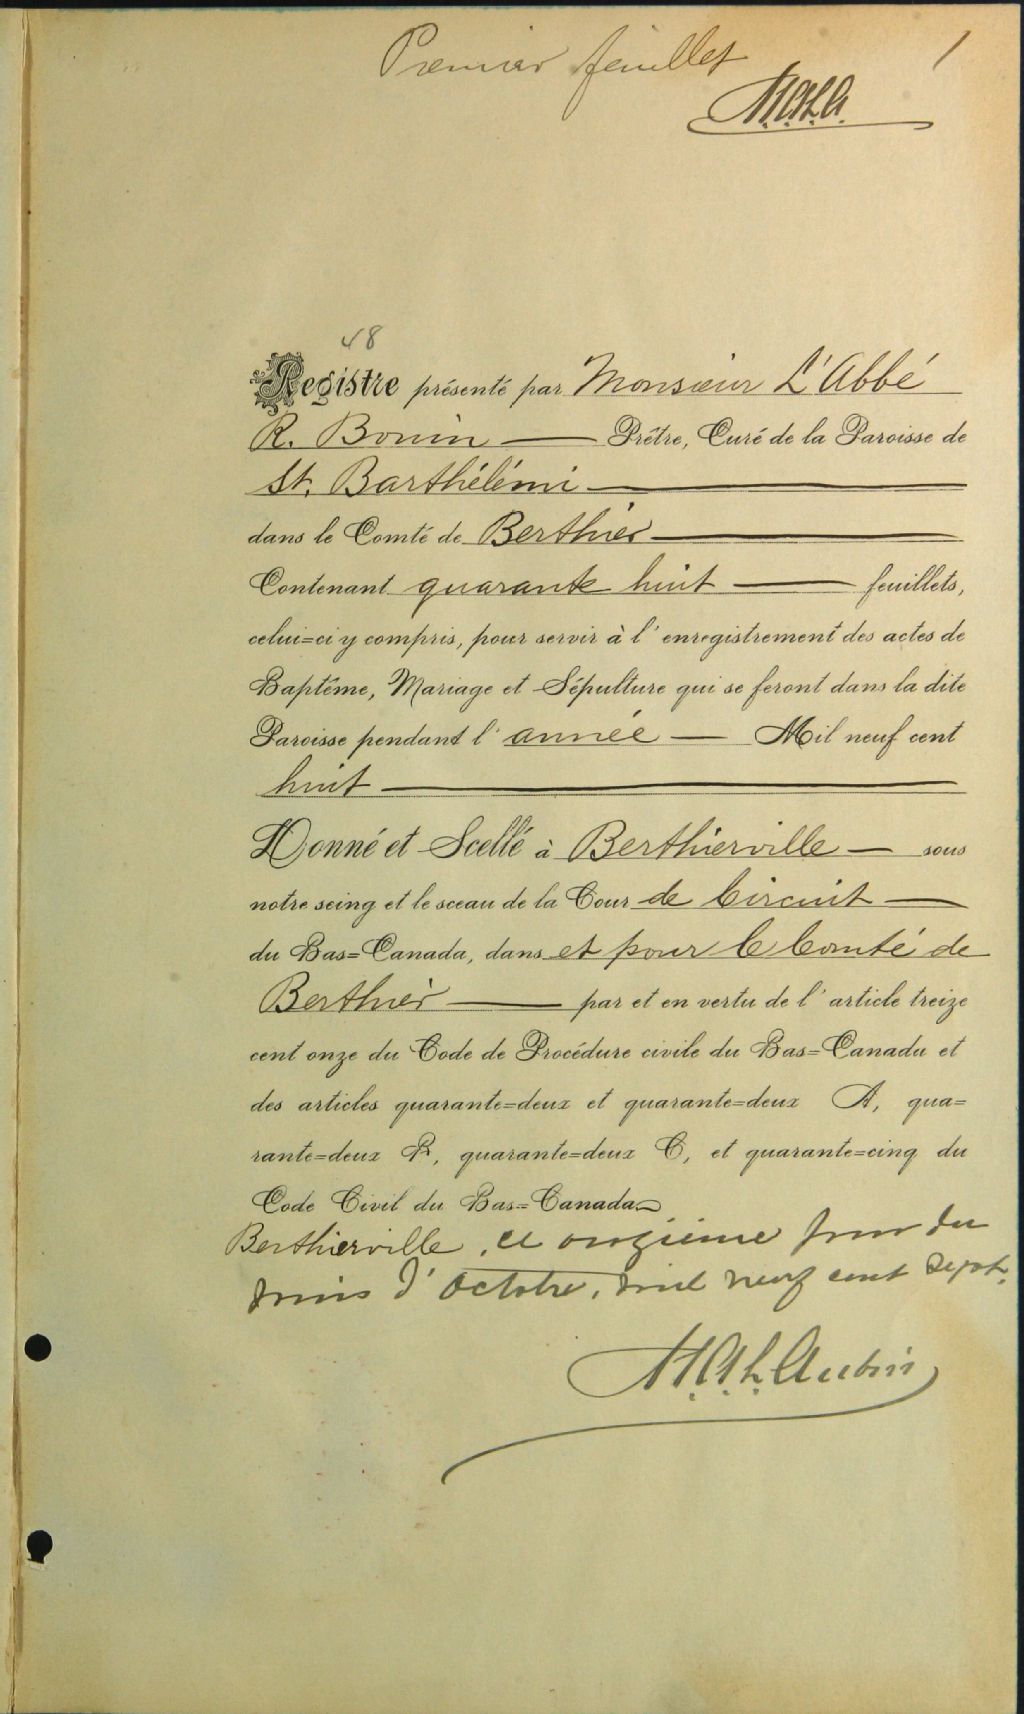 Premier feuillet
1
H.A.L.A.
48
Registre présenté par Monsieur L'Abbé
R. Bonin — Prêtre, Curé de la Paroisse de
St. Barthélémi —
dans le Comté de Berthier —
Contenant quarante huit — feuillets,
celui=ci y compris, pour servir à l'enregistrement des actes de
Baptême, Mariage et Sépulture qui se feront dans la dite
Paroisse pendant l'année — Mil neuf cent
huit —
Donné et Scellé à Berthierville — sous
notre seing et le sceau de la Cour de Circuit —
du Bas=Canada, dans et pour le Comté de
Berthier — par et en vertu de l'article treize
cent onze du Code de Procédure civile du Bas=Canada et
des articles quarante=deux et quarante=deux A, qua=
rante=deux B, quarante=deux C, et quarante=cinq du
Code Civil du Bas=Canada
Berthierville, ce onzième jour du
mois d'octobre, mil neuf cent sept.
H.A.L. Aubin